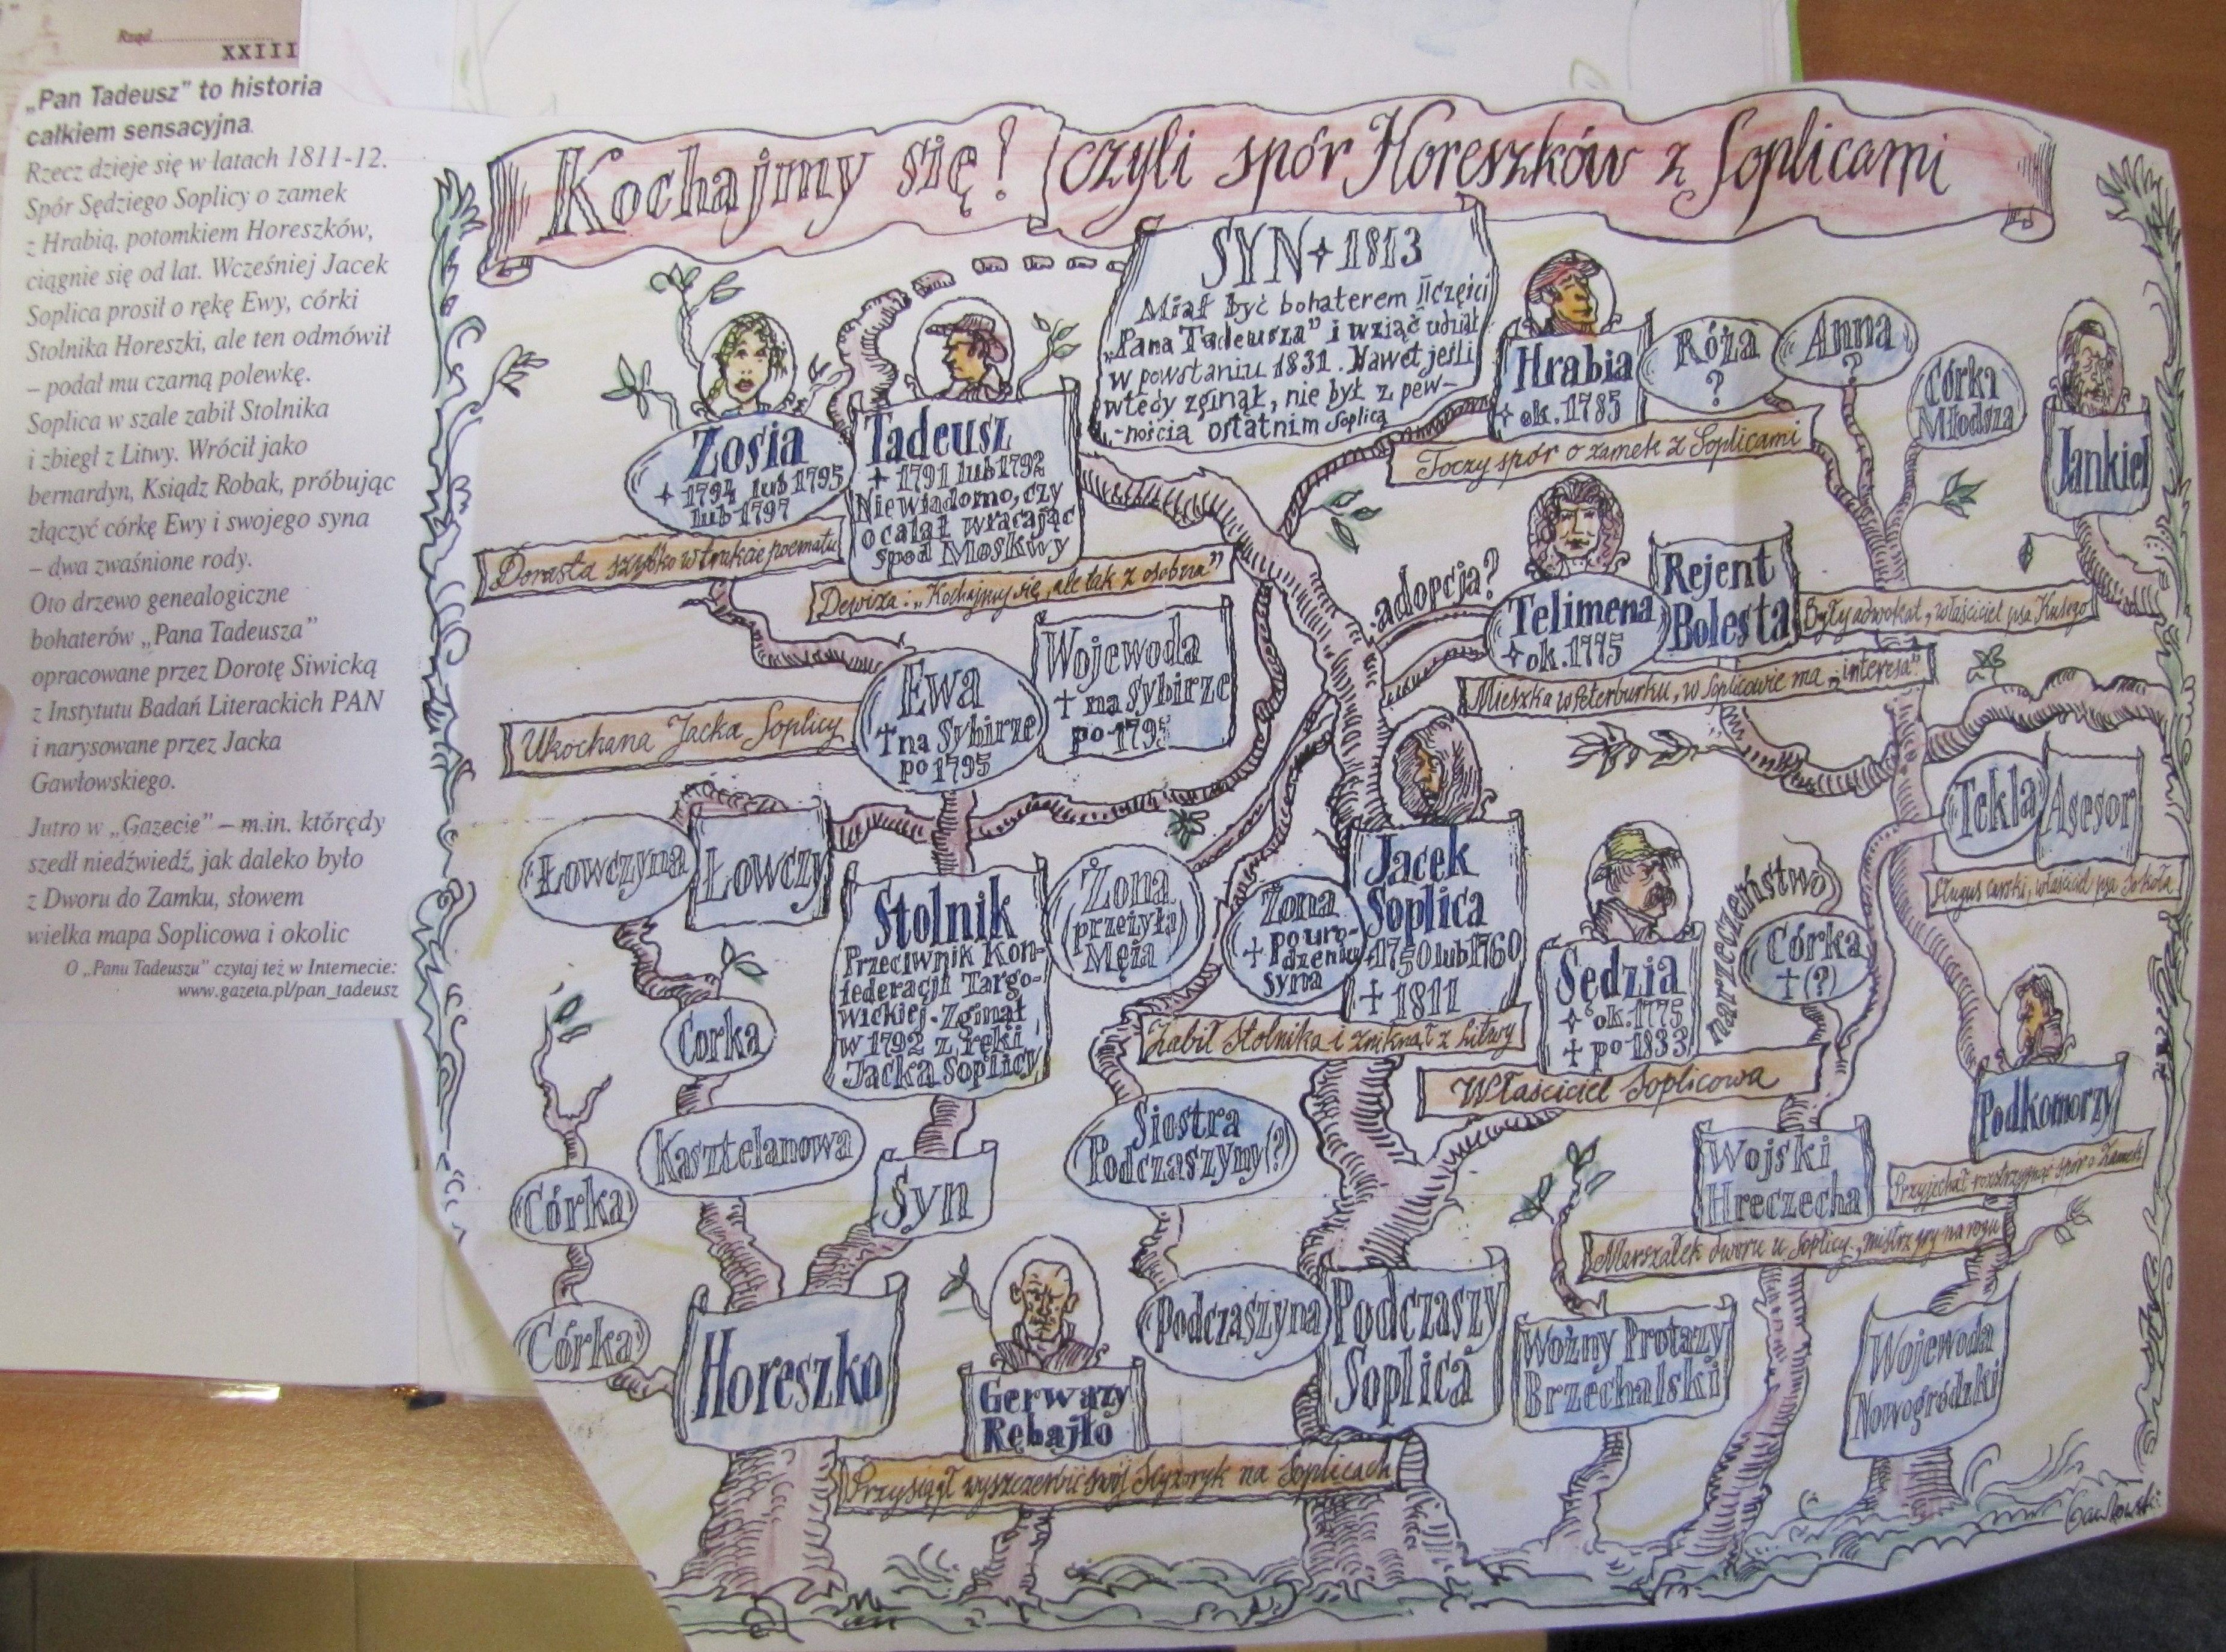 Rząd
XXIII
„Pan Tadeusz” to historia
całkiem sensacyjna.
Rzecz dzieje się w latach 1811-12.
Spór Sędziego Soplicy o zamek
z Hrabią, potomkiem Horeszków,
ciągnie się od lat. Wcześniej Jacek
Soplica prosił o rękę Ewy, córki
Stolnika Horeszki, ale ten odmówił
– podał mu czarną polewkę.
Soplica w szale zabił Stolnika
i zbiegł z Litwy. Wrócił jako
bernardyn, Ksiądz Robak, próbując
złączyć córkę Ewy i swojego syna
– dwa zwaśnione rody.
Oto drzewo genealogiczne
bohaterów „Pana Tadeusza”
opracowane przez Dorotę Siwicką
z Instytutu Badań Literackich PAN
i narysowane przez Jacka
Gawłowskiego.
Jutro w „Gazecie” – m.in. którędy
szedł niedźwiedź, jak daleko było
z Dworu do Zamku, słowem
wielka mapa Soplicowa i okolic
O „Panu Tadeuszu” czytaj też w Internecie:
www.gazeta.pl/pan_tadeusz
Kochajmy się! czyli spór Horeszków z Soplicami
SYN + 1813
Miał być bohaterem II części
„Pana Tadeusza” i wziąć udział
w powstaniu 1831. Nawet jeśli
wtedy zginął, nie był z pew-
-nością ostatnim Soplicą
Hrabia
+ ok. 1785
Róża
?
Anna
?
Córka
Młodsza
Jankiel
Toczy spór o zamek z Soplicami
Zosia
+ 1794 lub 1795
lub 1797
Tadeusz
+ 1791 lub 1792
Niewiadomo, czy
ocalał wracając
spod Moskwy
Dorasta szybko w trakcie poematu
Dewiza: „Kochajmy się, ale tak z osobna”
adopcja?
Telimena
+ ok. 1775
Rejent
Bolesta
Były adwokat, właściciel psa Kusego
Mieszka w Peterburku, w Soplicowie ma „interesa”
Ewa
+ na Sybirze
po 1795
Wojewoda
+ na Sybirze
po 1795
Ukochana Jacka Soplicy
Tekla
Asesor
Sługus carski, właściciel psa Sokoła
Łowczyna
Łowczy
Stolnik
Przeciwnik Kon-
federacji Targo-
wickiej. Zginął
w 1792 z ręki
Jacka Soplicy
Żona
(przeżyła)
Męża
Żona
+ po uro-
dzeniu
syna
Jacek
Soplica
+ 1750 lub 1760
+ 1811
Zabił Stolnika i zniknął z Litwy
Sędzia
+ ok. 1775
+ po 1833
narzeczeństwo
Córka
+ (?)
Właściciel Soplicowa
Podkomorzy
Przyjechał rozstrzygnąć spór o Zamek
Corka
Kasztelanowa
Syn
Siostra
Podczaszyny(?)
Wojski
Hreczecha
Marszałek dworu u Soplicy, mistrz gry na rogu
Córka
Córka
Horeszko
Gerwazy
Rębajło
Przysiągł wyszczerbić swój Scyzoryk na Soplicach
Podczaszyna
Podczaszy
Soplica
Woźny Protazy
Brzechalski
Wojewoda
Nowogródzki
Gawłowski